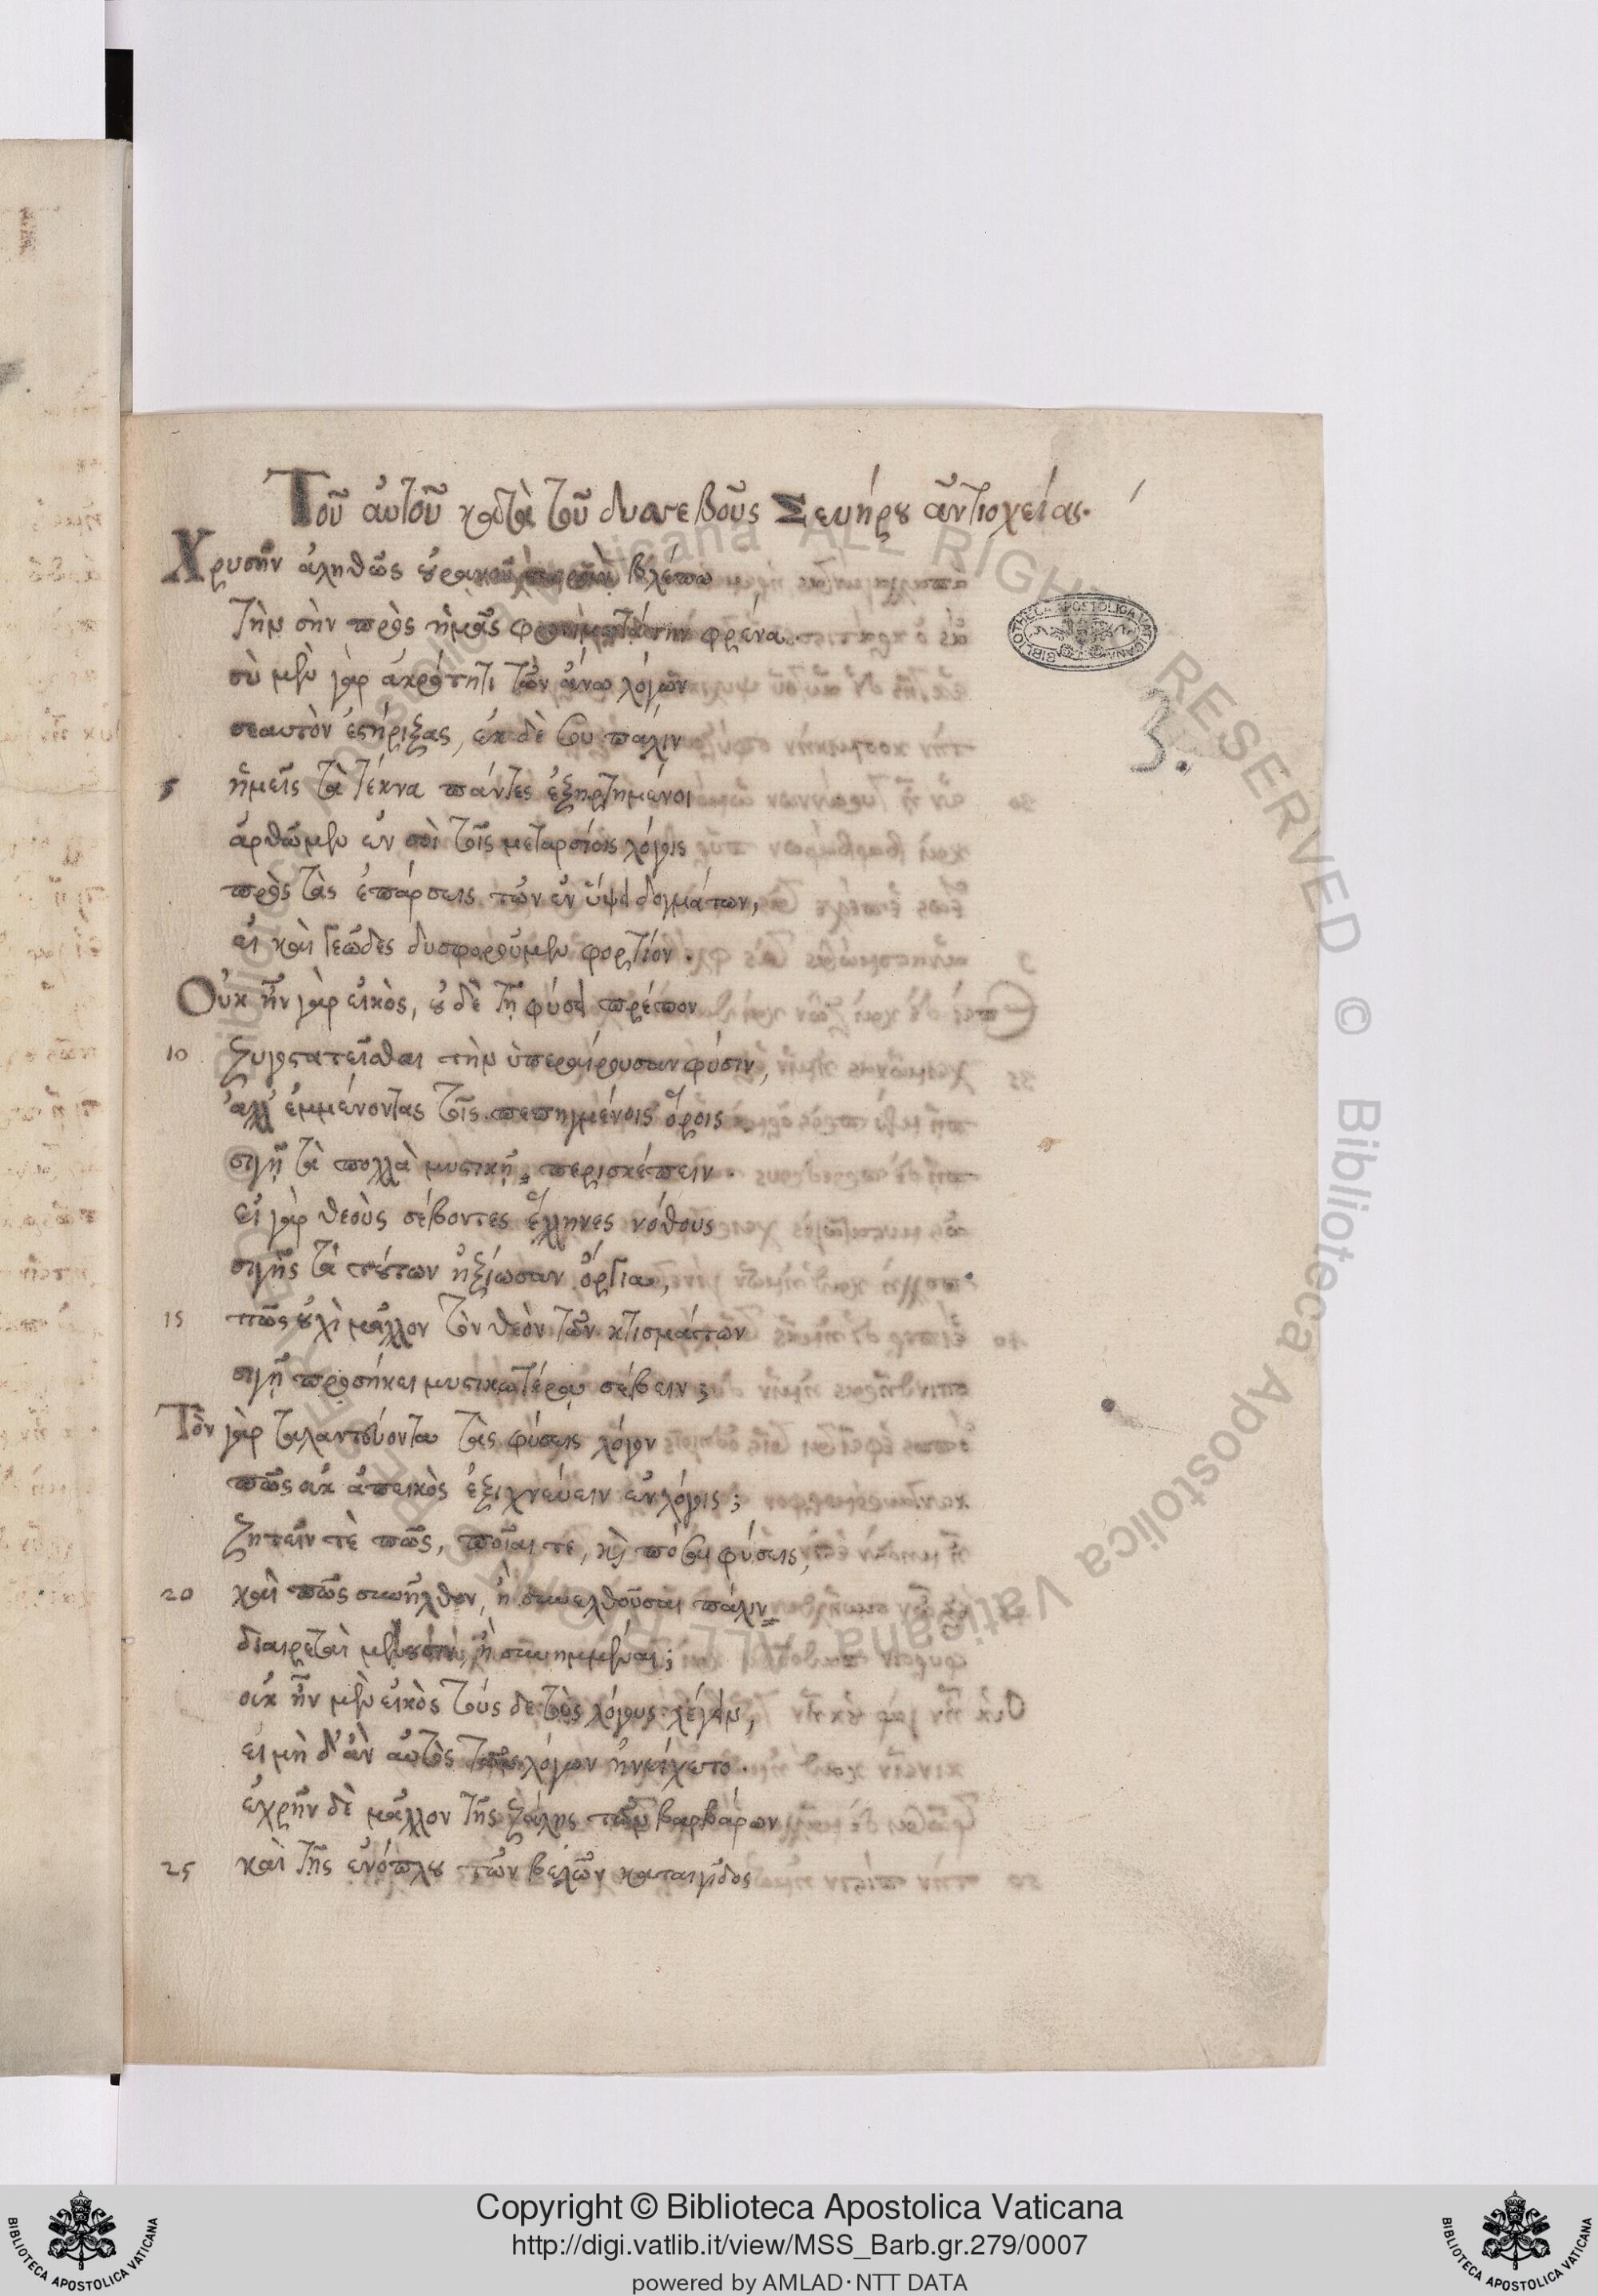 Τοῦ αὐτοῦ κατὰ τοῦ δυσσεβοῦς Σευήρου ἀντιοχείας.
Χρυσῆν ἀληθῶς οὐρανοῦ βλέπω
τὴν σὴν πρὸς ἡμᾶς φρένα.
σὺ μὲν γὰρ ἀκρότητι τῶν ἄνω λόγων
σεαυτὸν ἐστήριξας, ἐκ δὲ σου πάλιν
5 ἡμεῖς τὰ τέκνα πάντες ἐξηρτημένοι
ἀρθῶμεν ἐν σοὶ τοῖς μεταρσίοις λόγοις
πρὸς τὰς ἐπάρσεις τῶν ἐν ὕψει δογμάτων,
εἰ καὶ γεῶδες δυσφοροῦμεν φορτίον.
Οὐκ ἦν γὰρ εἰκὸς, οὐδὲ τῇ φύσει πρέπον
10 ζυγοστατεῖσθαι τὴν ὑπεραίρουσαν φύσιν,
ἀλλ' ἐμμένοντας τοῖς πεπηγμένοις ὅροις
σιγῇ τὰ πολλὰ μυστικῇ περισκέπειν
εἰ γὰρ θεοὺς σέβοντες ἕλληνες νόθους
σιγῆς τὰ τούτων ἠξίωσαν ὄργια,
15 πῶς οὐχὶ μᾶλλον τὸν θεὸν τῶν κτισμάτων
σιγῇ προσήκει μυστικωτέρᾳ σέβειν;
Τὸν γὰρ ταλαντεύοντα τὰς φύσεις λόγον
πῶς οὐκ ἀπεικὸς ἐξιχνεύειν ἐν λόγοις;
ζητεῖν τὲ πῶς, ποῖαι τε, καὶ πόσαι φύσεις,
20 καὶ πῶς συνῆλθον, ἢ συνελθοῦσαι πάλιν
διαιρεταὶ ἢ συνημμέναι;
οὐκ ἦν μὲν εἰκὸς τούς δε τοὺς λόγους λέγειν,
εἰ μὴ δ' ἂν αὐτὸς λόγων ἠνείχετο.
ἐχρῆν δὲ μᾶλλον τῆς ζάλης τῶν βαρβάρων
25 καὶ τῆς ἐνόπλου τῶν βελῶν καταιγίδος
3.
BIBLIOTHECA APOSTOLICA VATICANA
Copyright © Biblioteca Apostolica Vaticana
http://digi.vatlib.it/view/MSS_Barb.gr.279/0007
powered by AMLAD·NTT DATA
BIBLIOTECA APOSTOLICA VATICANA
BIBLIOTECA APOSTOLICA VATICANA